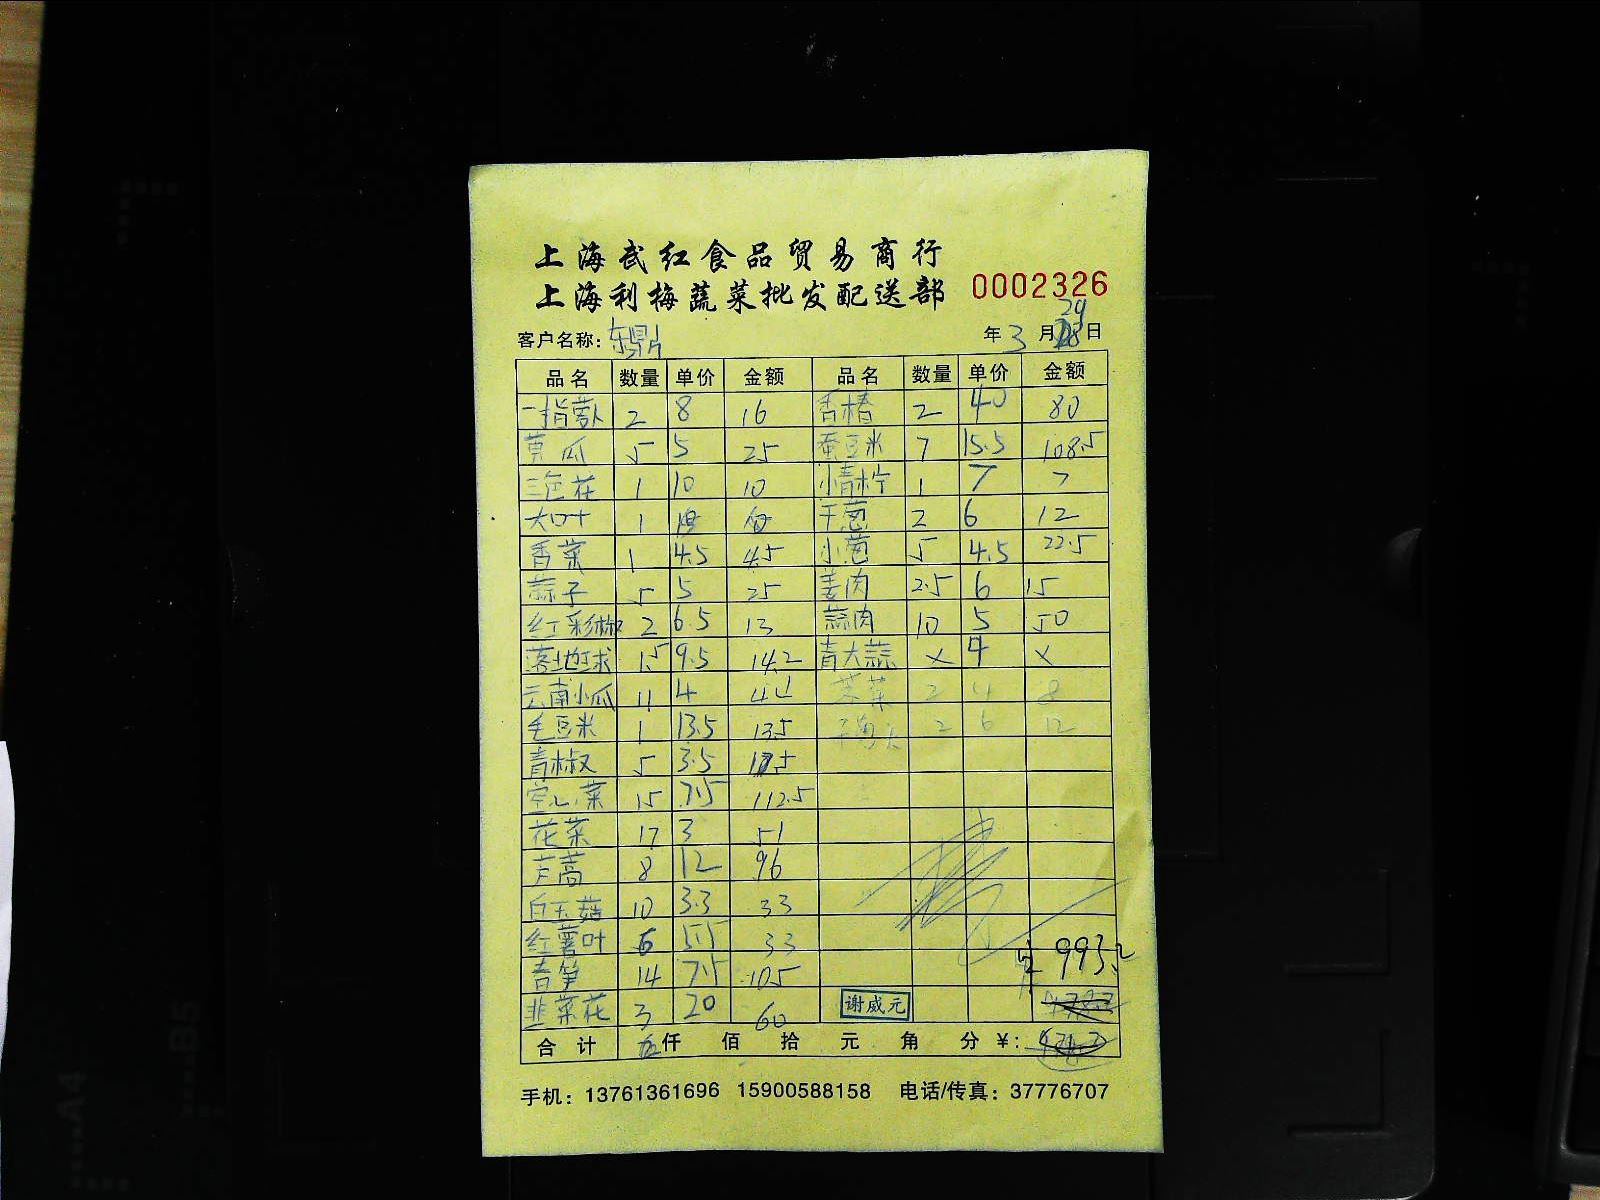 上海武红食品贸易商行
上海利梅蔬菜批发配送部 0002326
客户名称: 东鼎 年 3 月 29 日
品名 数量 单价 金额 品名 数量 单价 金额
一指萝卜 2 8 16 香椿 2 40 80
黄瓜 5 5 25 蚕豆米 7 15.5 108.5
三色花 1 10 10 小青柠 1 7 7
大叶 1 干葱 2 6 12
香菜 1 4.5 4.5 小葱 5 4.5 22.5
蒜子 5 5 25 姜肉 2.5 6 15
红彩椒 2 6.5 13 蒜肉 10 5 50
落地球 1.5 9.5 14.2 青大蒜 × 4 ×
云南小瓜 11 4 44 菜 2 4 8
毛豆米 1 13.5 13.5 干 2 6 12
青椒 5 3.5 17.5
空心菜 15 7.5 112.5
花菜 17 3 51
芦蒿 8 12 96
白玉菇 10 3.3 33
红薯叶 6 5.5 33
青笋 14 7.5 105 993.2
韭菜花 3 20 60 谢威元
合计 仟 佰 拾 元 角 分 ¥:
手机: 13761361696 15900588158 电话/传真: 37776707